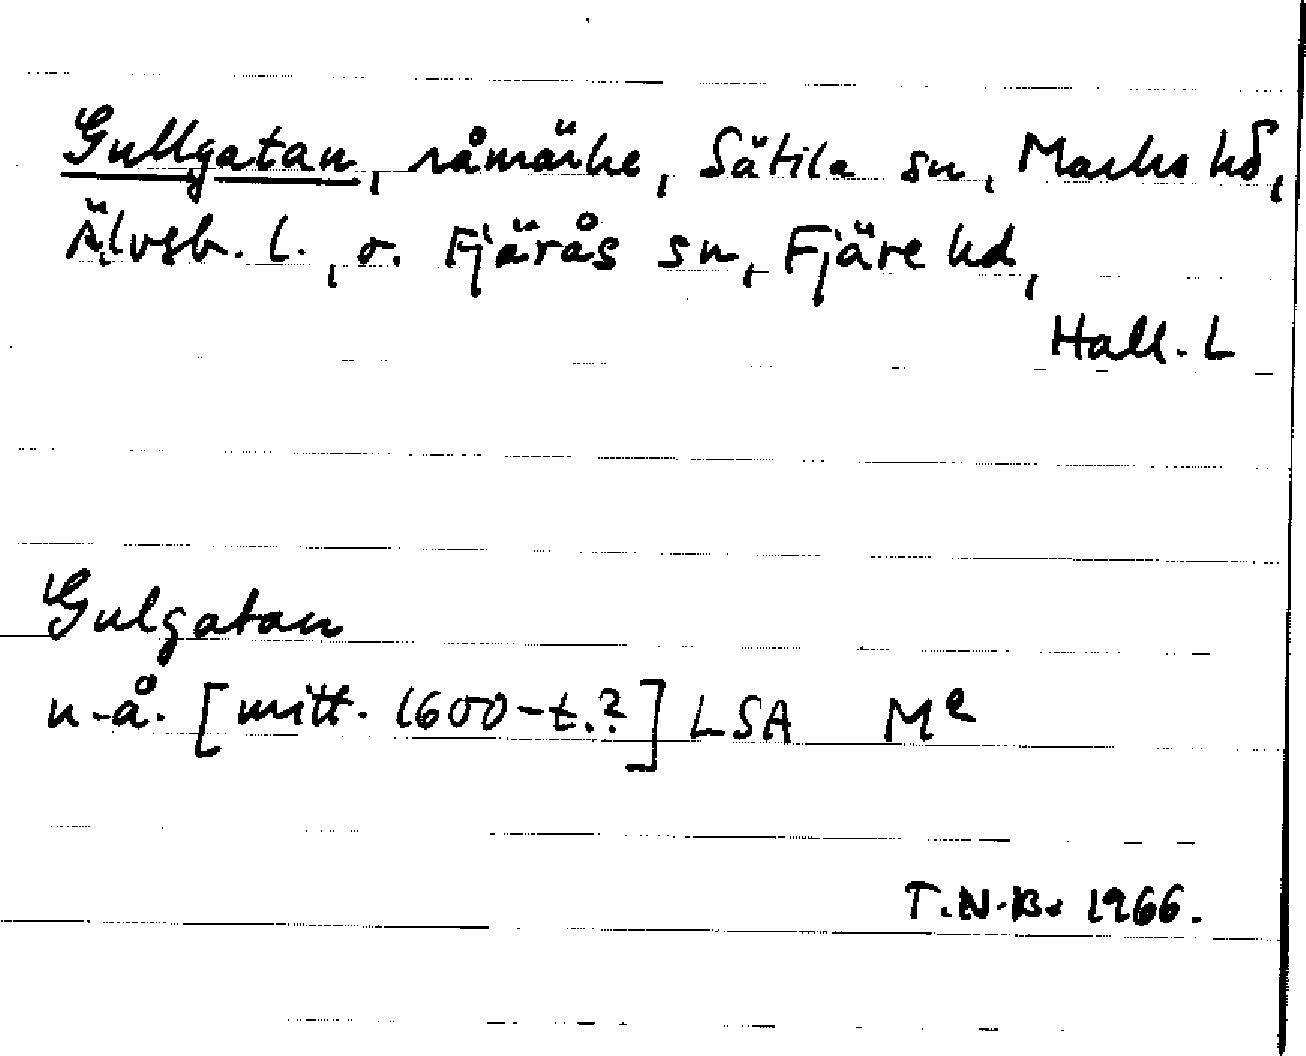 Gullgatan, råmärke, Sätila sn, Marks hd,
Älvsb. l., o. Fjärås sn, Fjäre hd,
Hall. L
Gulgatan
u.å. [mitt. 1600-t.?] LSA Me
T.N.B. 1966.